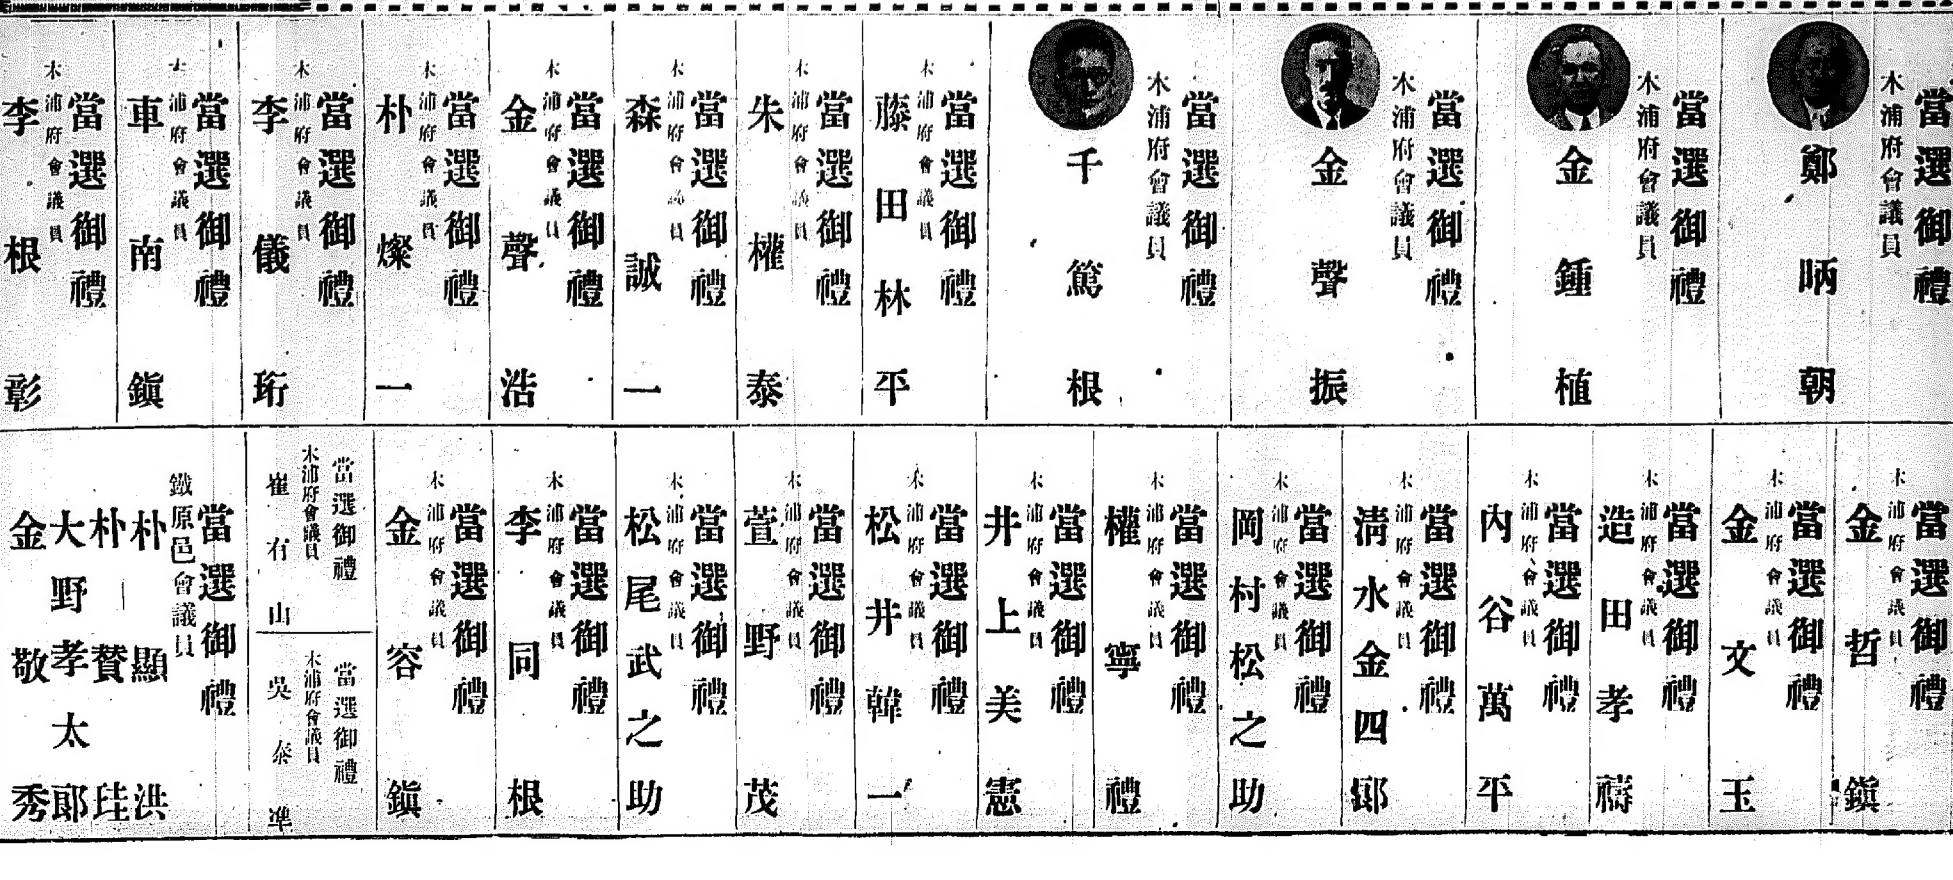 當選御禮
木浦府會議員
鄭昞朝
當選御禮
木浦府會議員
金鍾植
當選御禮
木浦府會議員
金聲振
當選御禮
木浦府會議員
千篤根
當選御禮
木浦府會議員
藤田林平
當選御禮
木浦府會議員
朱權泰
當選御禮
木浦府會議員
森誠一
當選御禮
木浦府會議員
金聲浩
當選御禮
木浦府會議員
朴燦一
當選御禮
木浦府會議員
李儀珩
當選御禮
木浦府會議員
車南鎭
當選御禮
木浦府會議員
李根彰
當選御禮
木浦府會議員
金哲鎭
當選御禮
木浦府會議員
金文玉
當選御禮
木浦府會議員
造田孝禱
當選御禮
木浦府會議員
內谷萬平
當選御禮
木浦府會議員
淸水金四郞
當選御禮
木浦府會議員
岡村松之助
當選御禮
木浦府會議員
權寧禮
當選御禮
木浦府會議員
井上美憲
當選御禮
木浦府會議員
松井韓一
當選御禮
木浦府會議員
萱野茂
當選御禮
木浦府會議員
松尾武之助
當選御禮
木浦府會議員
李同根
當選御禮
木浦府會議員
金容鎭
當選御禮
木浦府會議員
崔有山
當選御禮
木浦府會議員
吳泰準
當選御禮
鐵原邑會議員
朴顯洪
朴贊珪
大野孝太郞
金敬秀